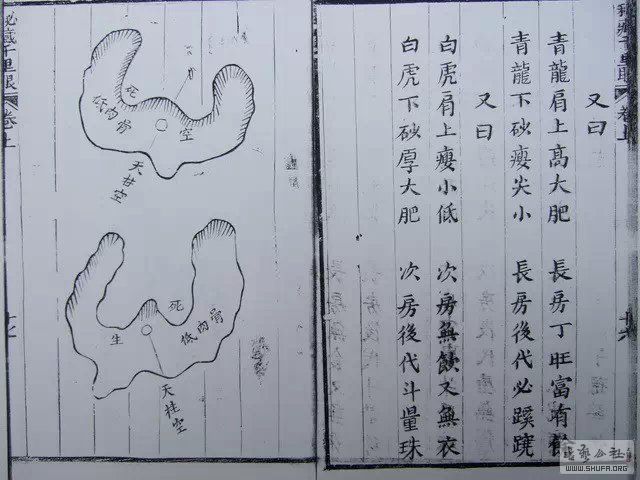 秘藏千里眼
卷上
又曰
青龍肩上高大肥 長房丁旺富有餘
青龍下砂瘦尖小 長房後代必蹊蹺
又曰
白虎肩上瘦小低 次房無飲又無衣
白虎下砂厚大肥 次房後代斗量珠
空
死
低肉骨
天柱空
死
低肉骨
生
天柱空
秘藏千里眼
卷上
書藝公社
WWW.SHUFA.ORG